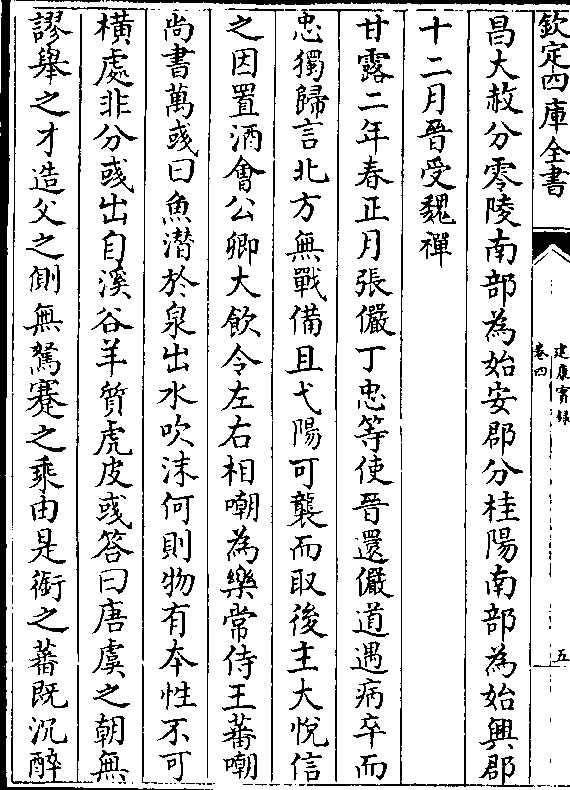 欽定四庫全書
建康實錄
卷四
五
昌大赦分零陵南部為始安郡分桂陽南部為始興郡
十二月晉受魏禪
甘露二年春正月張儼丁忠等使晉還儼道遇病卒而
忠獨歸言北方無戰備且弋陽可襲而取後主大悅信
之因置酒會公卿大飲令左右相嘲為樂常侍王蕃嘲
尚書萬彧曰魚潛於泉出水吹沫何則物有本性不可
橫處非分彧出自溪谷羊質虎皮彧答曰唐虞之朝無
謬舉之才造父之側無駑蹇之乘由是銜之蕃既沉醉